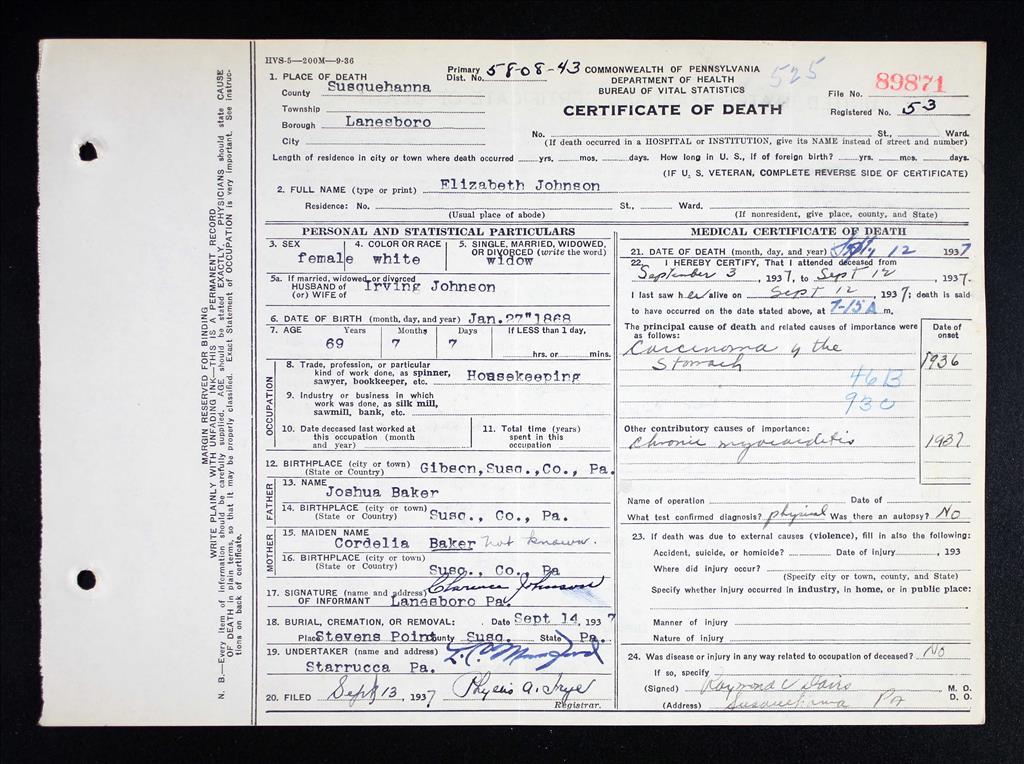 HVS-5—200M—9-36
Primary Dist. No. 58-08-43
COMMONWEALTH OF PENNSYLVANIA
DEPARTMENT OF HEALTH
BUREAU OF VITAL STATISTICS
525
CERTIFICATE OF DEATH
File No. 89871
Registered No. 53
1. PLACE OF DEATH
County Susquehanna
Township
Borough Lanesboro
City
No. St., Ward.
(If death occurred in a HOSPITAL or INSTITUTION, give its NAME instead of street and number)
Length of residence in city or town where death occurred yrs. mos. days. How long in U. S., if of foreign birth? yrs. mos. days.
(IF U. S. VETERAN, COMPLETE REVERSE SIDE OF CERTIFICATE)
2. FULL NAME (type or print) Elizabeth Johnson
Residence: No. St., Ward.
(Usual place of abode) (If nonresident, give place, county, and State)
PERSONAL AND STATISTICAL PARTICULARS
3. SEX 4. COLOR OR RACE 5. SINGLE, MARRIED, WIDOWED, OR DIVORCED (write the word)
female white widow
5a. If married, widowed, or divorced
HUSBAND of
(or) WIFE of Irving Johnson
6. DATE OF BIRTH (month, day, and year) Jan. 27" 1868
7. AGE Years Months Days If LESS than 1 day,
69 7 7 hrs. or mins.
OCCUPATION
8. Trade, profession, or particular
kind of work done, as spinner,
sawyer, bookkeeper, etc. Housekeeping
9. Industry or business in which
work was done, as silk mill,
sawmill, bank, etc.
10. Date deceased last worked at
this occupation (month
and year)
11. Total time (years)
spent in this
occupation
12. BIRTHPLACE (city or town)
(State or Country) Gibson,Susq.,Co., Pa.
FATHER
13. NAME
Joshua Baker
14. BIRTHPLACE (city or town)
(State or Country) Susq., Co., Pa.
MOTHER
15. MAIDEN NAME
Cordelia Baker not known.
16. BIRTHPLACE (city or town)
(State or Country) Susq., Co., Pa
17. SIGNATURE (name and address) Clarence Johnson
OF INFORMANT Lanesboro Pa.
18. BURIAL, CREMATION, OR REMOVAL: Date Sept 14, 1937
Place Stevens Point County Susq. State Pa.
19. UNDERTAKER (name and address)
Starrucca Pa.
20. FILED Sept 13, 1937 Phyllis A. Frye
Registrar.
MEDICAL CERTIFICATE OF DEATH
21. DATE OF DEATH (month, day, and year) Sept 12 1937
22. I HEREBY CERTIFY, That I attended deceased from
September 3, 1937, to Sept 12, 1937.
I last saw her alive on Sept 12, 1937; death is said
to have occurred on the date stated above, at 7-15 A m.
The principal cause of death and related causes of importance were as follows:
Date of onset
Carcinoma of the
Stomach 1936
46B
930
Other contributory causes of importance:
Chronic myocarditis 1937
Name of operation Date of
What test confirmed diagnosis? physical Was there an autopsy? No
23. If death was due to external causes (violence), fill in also the following:
Accident, suicide, or homicide? Date of injury , 193
Where did injury occur?
(Specify city or town, county, and State)
Specify whether injury occurred in industry, in home, or in public place:
Manner of injury
Nature of injury
24. Was disease or injury in any way related to occupation of deceased? No
If so, specify
(Signed) Raymond C Davis, M. D.
D. O.
(Address) Susquehanna Pa
MARGIN RESERVED FOR BINDING
WRITE PLAINLY WITH UNFADING INK—THIS IS A PERMANENT RECORD
N. B.—Every item of information should be carefully supplied. AGE should be stated EXACTLY. PHYSICIANS should state CAUSE
OF DEATH in plain terms, so that it may be properly classified. Exact Statement of OCCUPATION is very important. See instruc-
tions on back of certificate.